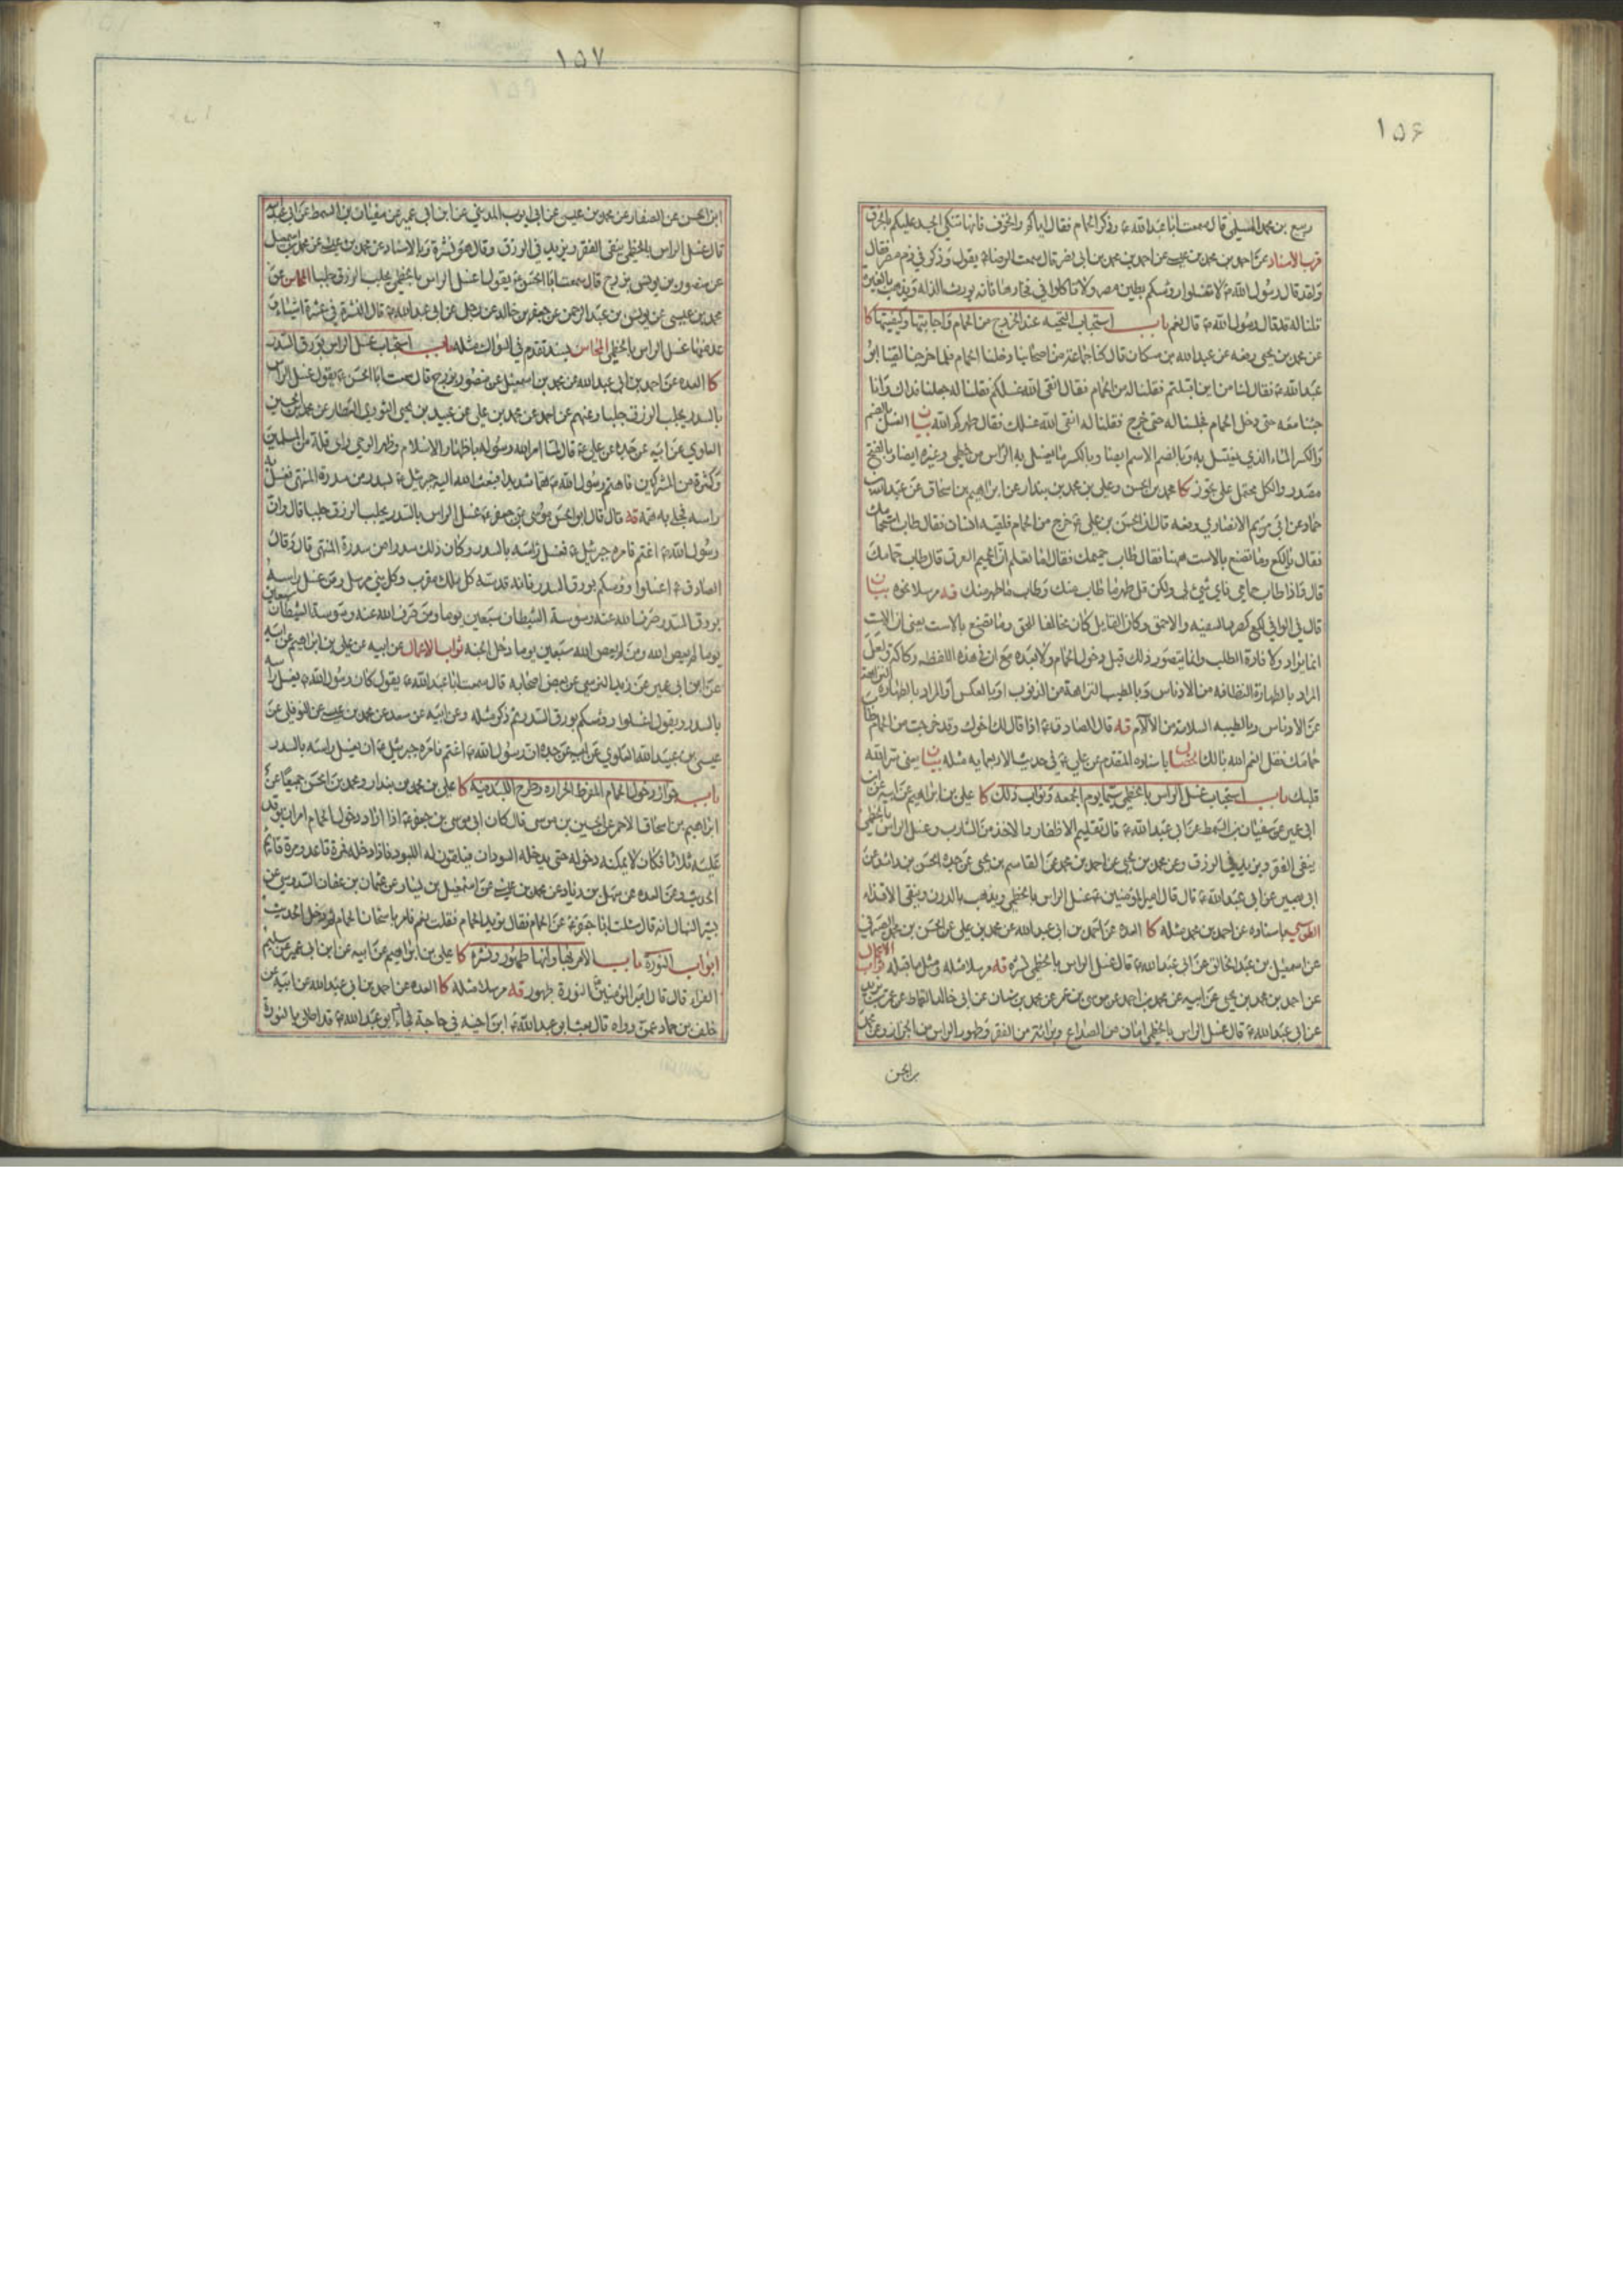 ١٥۶
ربيع بن محمد المسلي قال سمعت ابا عبد الله ع وذكر الحمام فقال اياكم والخزف فانها تنكي الجسد عليكم بالخرق
قرب الاسناد عن احمد بن محمد بن عيسى عن احمد بن محمد بن ابي نصر قال سمعت الرضا ع يقول وذكر في ذم مصر فقال
ولقد قال رسول الله ص لا تغسلوا رؤسكم بطين مصر ولا تاكلوا في فخارها فانه يورث الذلة ويذهب بالغيرة
قلنا له قد قال رسول الله ص قال نعم باب استحباب التحية عند الخروج من الحمام واجابتها وكيفيتها كا
عن محمد بن يحيى رفعه عن عبد الله بن مسكان قال كنا جماعة من اصحابنا دخلنا الحمام فلما خرجنا لقينا ابو
عبد الله ع فقال لنا من اين اقبلتم فقلنا له من الحمام فقال انقى الله غسلكم فقلنا له جعلنا فداك وانا
جئنا معه حتى دخل الحمام فجلسنا له حتى خرج فقلنا له انقى الله غسلك فقال طهركم الله بيان الغسل بالضم
والكسر الماء الذي يغتسل به وبالضم الاسم ايضا وبالكسر ما يغسل به الراس من خطمي وغيره ايضا وبالفتح
مصدر والكل محتمل على تجوز كا محمد بن الحسن وعلي بن محمد بن بندار عن ابراهيم بن اسحاق عن عبد الله بن
حماد عن ابي مريم الانصاري رفعه قال ان الحسن بن علي ع خرج من الحمام فلقيه انسان فقال طاب استحمامك
فقال يا لكع وما تصنع بالاست ههنا فقال طاب حميمك فقال اما تعلم ان الحميم العرق قال طاب حمامك
قال فاذا طاب حمامي فاي شيء لي ولكن قل طهر ما طاب منك وطاب ما طهر منك قه مرسلا نحوه بيان
قال في الوافي لكع كصرد السفيه والاحمق وكان القايل كان مخالفا للحق وما تصنع بالاست يعني ان الاست
انما يراد لافادة الطلب وانما يتصور ذلك قبل دخول الحمام ولا بعده مع ان في هذه اللفظه ركاكة ولعل
المراد بالطهارة النظافة من الادناس وبالطيب النزاهة من الذنوب او بالعكس او المراد بالطهارة النزاهة
عن الادناس وبالطيبه السلامة من الالام قه قال الصادق ع اذا قال لك اخوك وقد خرجت من الحمام طاب
حمامك فقل انعم الله بالك الخصال باسناده المتقدم عن علي ع في حديث الاربعمايه مثله بيان يعني سر الله
قلبك باب استحباب غسل الراس بالخطمي سيما يوم الجمعه وثواب ذلك كا علي بن ابراهيم عن ابيه عن ابن
ابي عمير عن سفيان بن السمط عن ابي عبد الله ع قال تقليم الاظفار والاخذ من الشارب وغسل الراس بالخطمي
ينفي الفقر ويزيد في الرزق وعن محمد بن يحيى عن احمد بن محمد عن القاسم بن يحيى عن جده الحسن بن راشد عن
ابي بصير عن ابي عبد الله ع قال قال امير المؤمنين ع غسل الراس بالخطمي يذهب بالدرن وينفي الاقذاء
الطوسي باسناده عن احمد بن محمد مثله كا العدة عن احمد بن ابي عبد الله عن محمد بن علي عن الحسن بن محمد الصيرفي
عن اسمعيل بن عبد الخالق عن ابي عبد الله ع قال غسل الراس بالخطمي نشرة قه مرسلا مثله ومثل ما قبله ثواب الاعمال
عن احمد بن محمد بن يحيى عن ابيه عن محمد بن احمد عن موسى بن عمر عن محمد بن سنان عن ابي خالد القماط عن عمر بن يزيد
عن ابي عبد الله ع قال غسل الراس بالخطمي امان من الصداع وبراءة من الفقر وطهور الراس من الحزاز وعن محمد
بن الحسن
١٥٧
ابن الحسن عن الصفار عن محمد بن عيسى عن ابي ايوب المديني عن ابن ابي عمير عن سفيان بن السمط عن ابي عبد الله
قال غسل الراس بالخطمي ينفي الفقر ويزيد في الرزق وقال هو نشرة وبالاسناد عن محمد بن عيسى عن محمد بن اسمعيل
عن منصور بن يونس بن بزرج قال سمعت ابا الحسن ع يقول غسل الراس بالخطمي يجلب الرزق جلبا المحاسن عن
محمد بن عيسى عن يونس بن عبد الرحمن عن جعفر بن خالد عن رجل عن ابي عبد الله ع قال النشرة في عشرة اشياء وق
عد منها غسل الراس بالخطمي المحاسن بسند تقدم في السواك مثله باب استحباب غسل الراس بورق السدر
كا العدة عن احمد بن ابي عبد الله عن محمد بن اسمعيل عن منصور بزرج قال سمعت ابا الحسن ع يقول غسل الراس
بالسدر يجلب الرزق جلبا وعنهم عن احمد عن محمد بن علي عن عبيد بن يحيى الثوري العطار عن محمد بن الحسين
العلوي عن ابيه عن جده عن علي ع قال لما امر الله رسوله باظهار الاسلام وظهر الوحي راى قلة من المسلمين
وكثرة من المشركين فاهتم رسول الله ص هما شديدا فبعث الله اليه جبرئيل ع بسدر من سدرة المنتهى فغسل به
راسه فجلا به همه قه قال قال ابو الحسن موسى بن جعفر ع غسل الراس بالسدر يجلب الرزق جلبا قال وان
رسول الله ص اغتم فامره جبرئيل ع فغسل راسه بالسدر وكان ذلك سدرا من سدرة المنتهى قال وقال
الصادق ع اغسلوا رؤسكم بورق السدر فانه قدسه كل ملك مقرب وكل نبي مرسل ومن غسل راسه
بورق السدر صرف الله عنه وسوسة الشيطان سبعين يوما ومن صرف الله عنه وسوسة الشيطان سبعين
يوما لم يعص الله ومن لم يعص الله سبعين يوما دخل الجنه ثواب الاعمال عن ابيه عن علي بن ابراهيم عن ابيه
عن ابن ابي عمير عن زيد النرسي عن بعض اصحابه قال سمعت ابا عبد الله ع يقول كان رسول الله ص يغسل راسه
بالسدر ويقول اغسلوا رؤسكم بورق السدر ثم ذكر مثله وعن ابيه عن سعد عن محمد بن عيسى عن النوفلي عن
عيسى بن عبد الله العلوي عن ابيه عن جده ان رسول الله ص اغتم فامره جبرئيل ع ان يغسل راسه بالسدر
باب جواز دخول الحمام المفرط الحراره وطرح اللبد فيه كا علي بن محمد بن بندار ومحمد بن الحسن جميعا عن
ابراهيم بن اسحاق الاحمر عن الحسين بن موسى قال كان ابي موسى بن جعفر ع اذا اراد دخول الحمام امر ان يوقد
عليه ثلاثا فكان لا يمكنه دخوله حتى يدخله السودان فيلقون له اللبود فاذا دخله فمرة قاعد ومرة قائم
الحديث وعن العده عن سهل بن زياد عن محمد بن عيسى عن اسمعيل بن يسار عن عثمان بن عفان السدوسي عن
بشير النبال انه قال سئلت ابا جعفر ع عن الحمام فقال تريد الحمام فقلت نعم فامر باسخان الحمام ثم دخل الحديث
ابواب النورة باب الامر بها وانها طهور ونشرة كا علي بن ابراهيم عن ابيه عن ابن ابي عمير عن سليم
الفراء قال قال امير المؤمنين ع النورة طهور قه مرسلا مثله كا العده عن احمد بن ابي عبد الله عن ابيه عن
خلف بن حماد عمن رواه قال بعث ابو عبد الله ع ابن اخيه في حاجة فجاء وابو عبد الله ع قد اطلى بالنورة